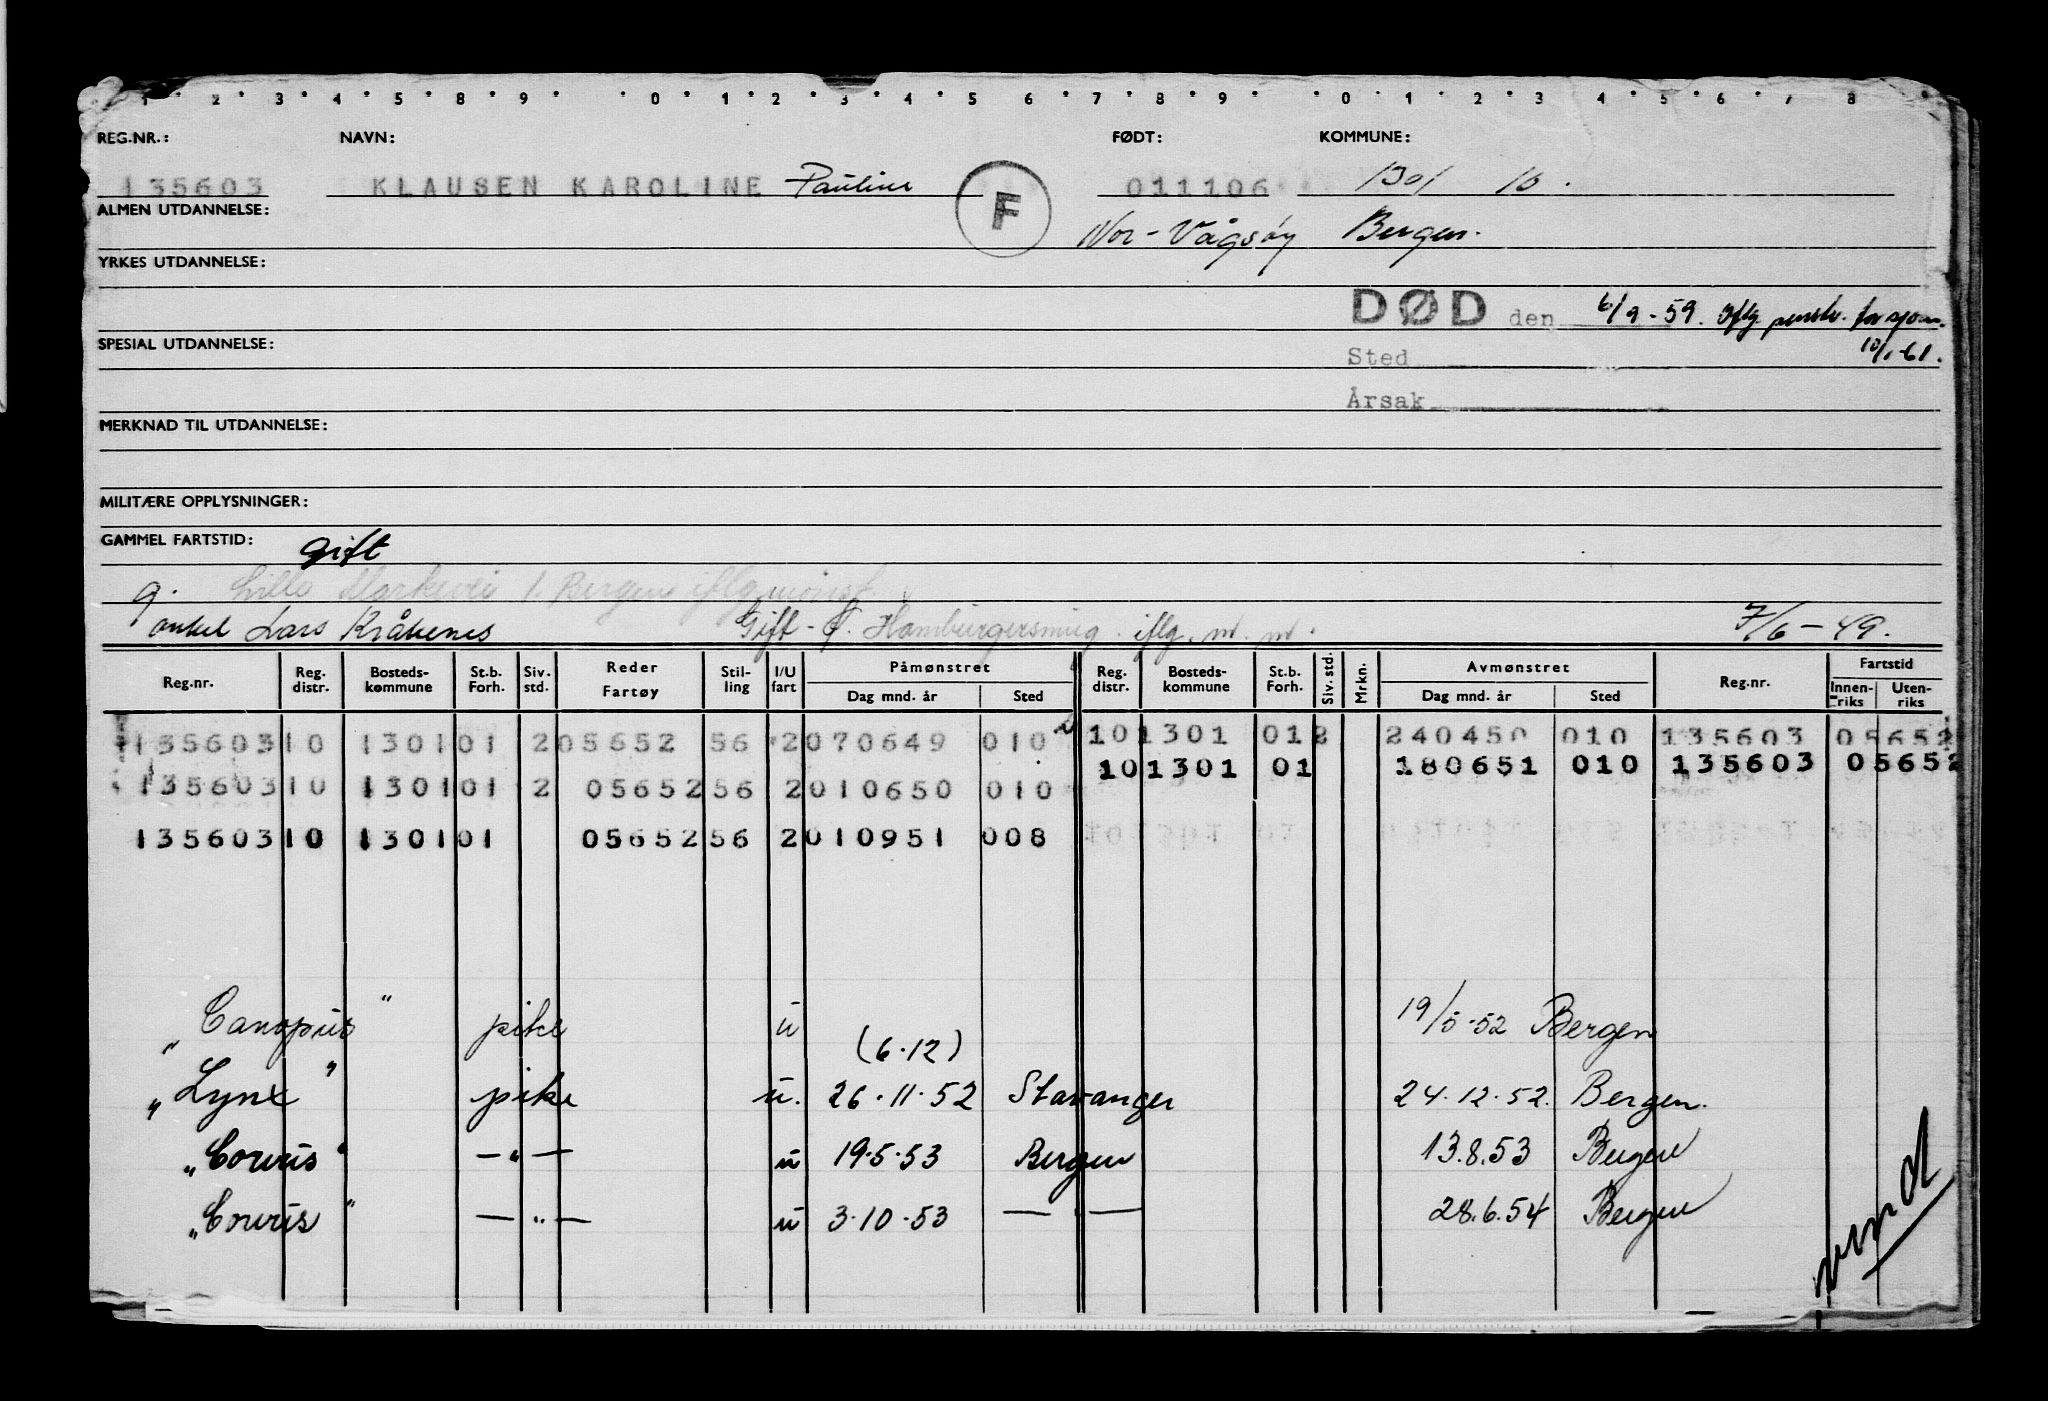 1 2 3 4 5 8 9 0 1 2 3 4 5 6 7 8 9 0 1 2 3 4 5 6 7 8
REG.NR.: NAVN: FØDT: KOMMUNE:
135603 KLAUSEN KAROLINE Pauline F 011106 1301 16.
ALMEN UTDANNELSE: Nor-Vågsøy Bergen.
YRKES UTDANNELSE:
DØD den 6/9-59. Iflg. for sjøm.
SPESIAL UTDANNELSE: Sted 10/1-61.
Årsak
MERKNAD TIL UTDANNELSE:
MILITÆRE OPPLYSNINGER:
GAMMEL FARTSTID: gift
g. Lille Markevei 1. Bergen iflg mønst.
onkel Lars Kråkenes Gift - C. Hamburgersmug. iflg. m. m. 7/6-49.
Reg.nr. Reg. distr. Bosteds-kommune St.b. Forh. Siv. std. Reder Fartøy Stil-ling I/U fart Påmønstret Dag mnd. år Sted Reg. distr. Bosteds-kommune St.b. Forh. Siv. std. Mrkn. Avmønstret Dag mnd. år Sted Reg.nr. Fartstid Innen-riks Uten-riks
135603 10 1301 01 2 05652 56 2 070649 010 10 1301 01 2 240450 010 135603 05652
135603 10 1301 01 2 05652 56 2 010650 010 10 1301 01 180651 010 135603 05652
135603 10 1301 01 05652 56 2 010951 008
"Canopus" pike u 19/5-52 Bergen
(6.12)
"Lynx" pike u. 26.11.52 Stavanger 24.12.52. Bergen.
"Corvus" -"- u 19.5.53 Bergen 13.8.53 Bergen
"Corvus" -"- u 3.10.53 -"- 28.6.54 Bergen
vend